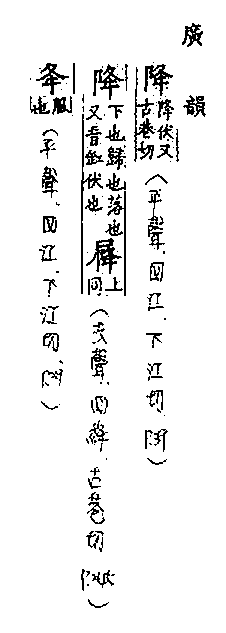 廣韻
降降伏又古巷切(平聲、四江、下江切、)
降下也歸也落也又音缸伏也𨹟上同(去聲、四絳、古巷切、)
夅服也(平聲、四江、下江切、)